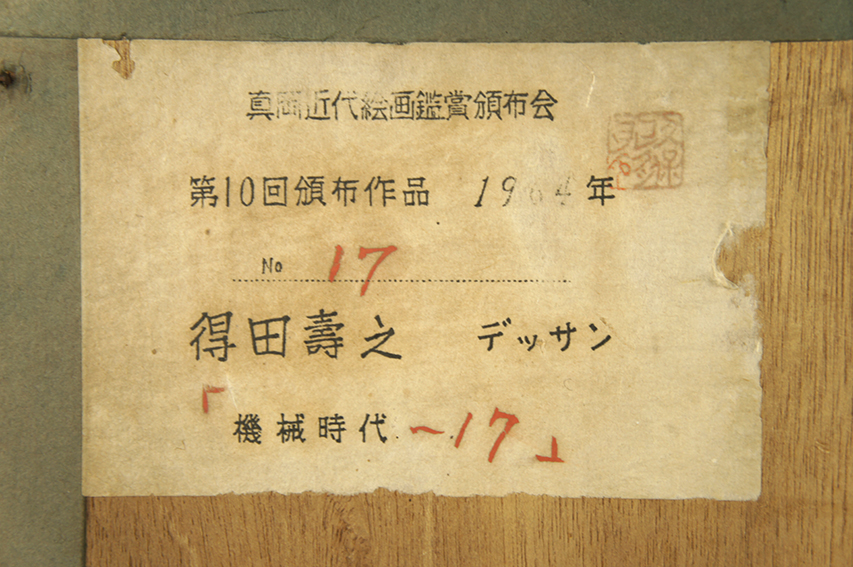 真岡近代絵画鑑賞頒布会
第10回頒布作品 1964年
No 17
得田壽之 デッサン
「機械時代〜17」